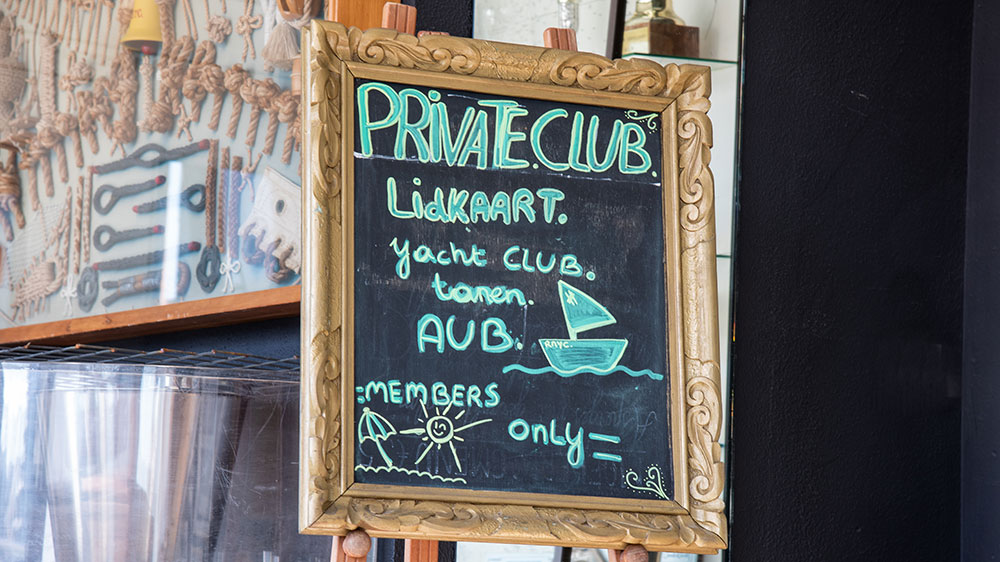 PRIVATE.CLUB.
LidKAART.
yacht CLUB.
tonen.
AUB.
R.N.Y.C.
=MEMBERS
only=